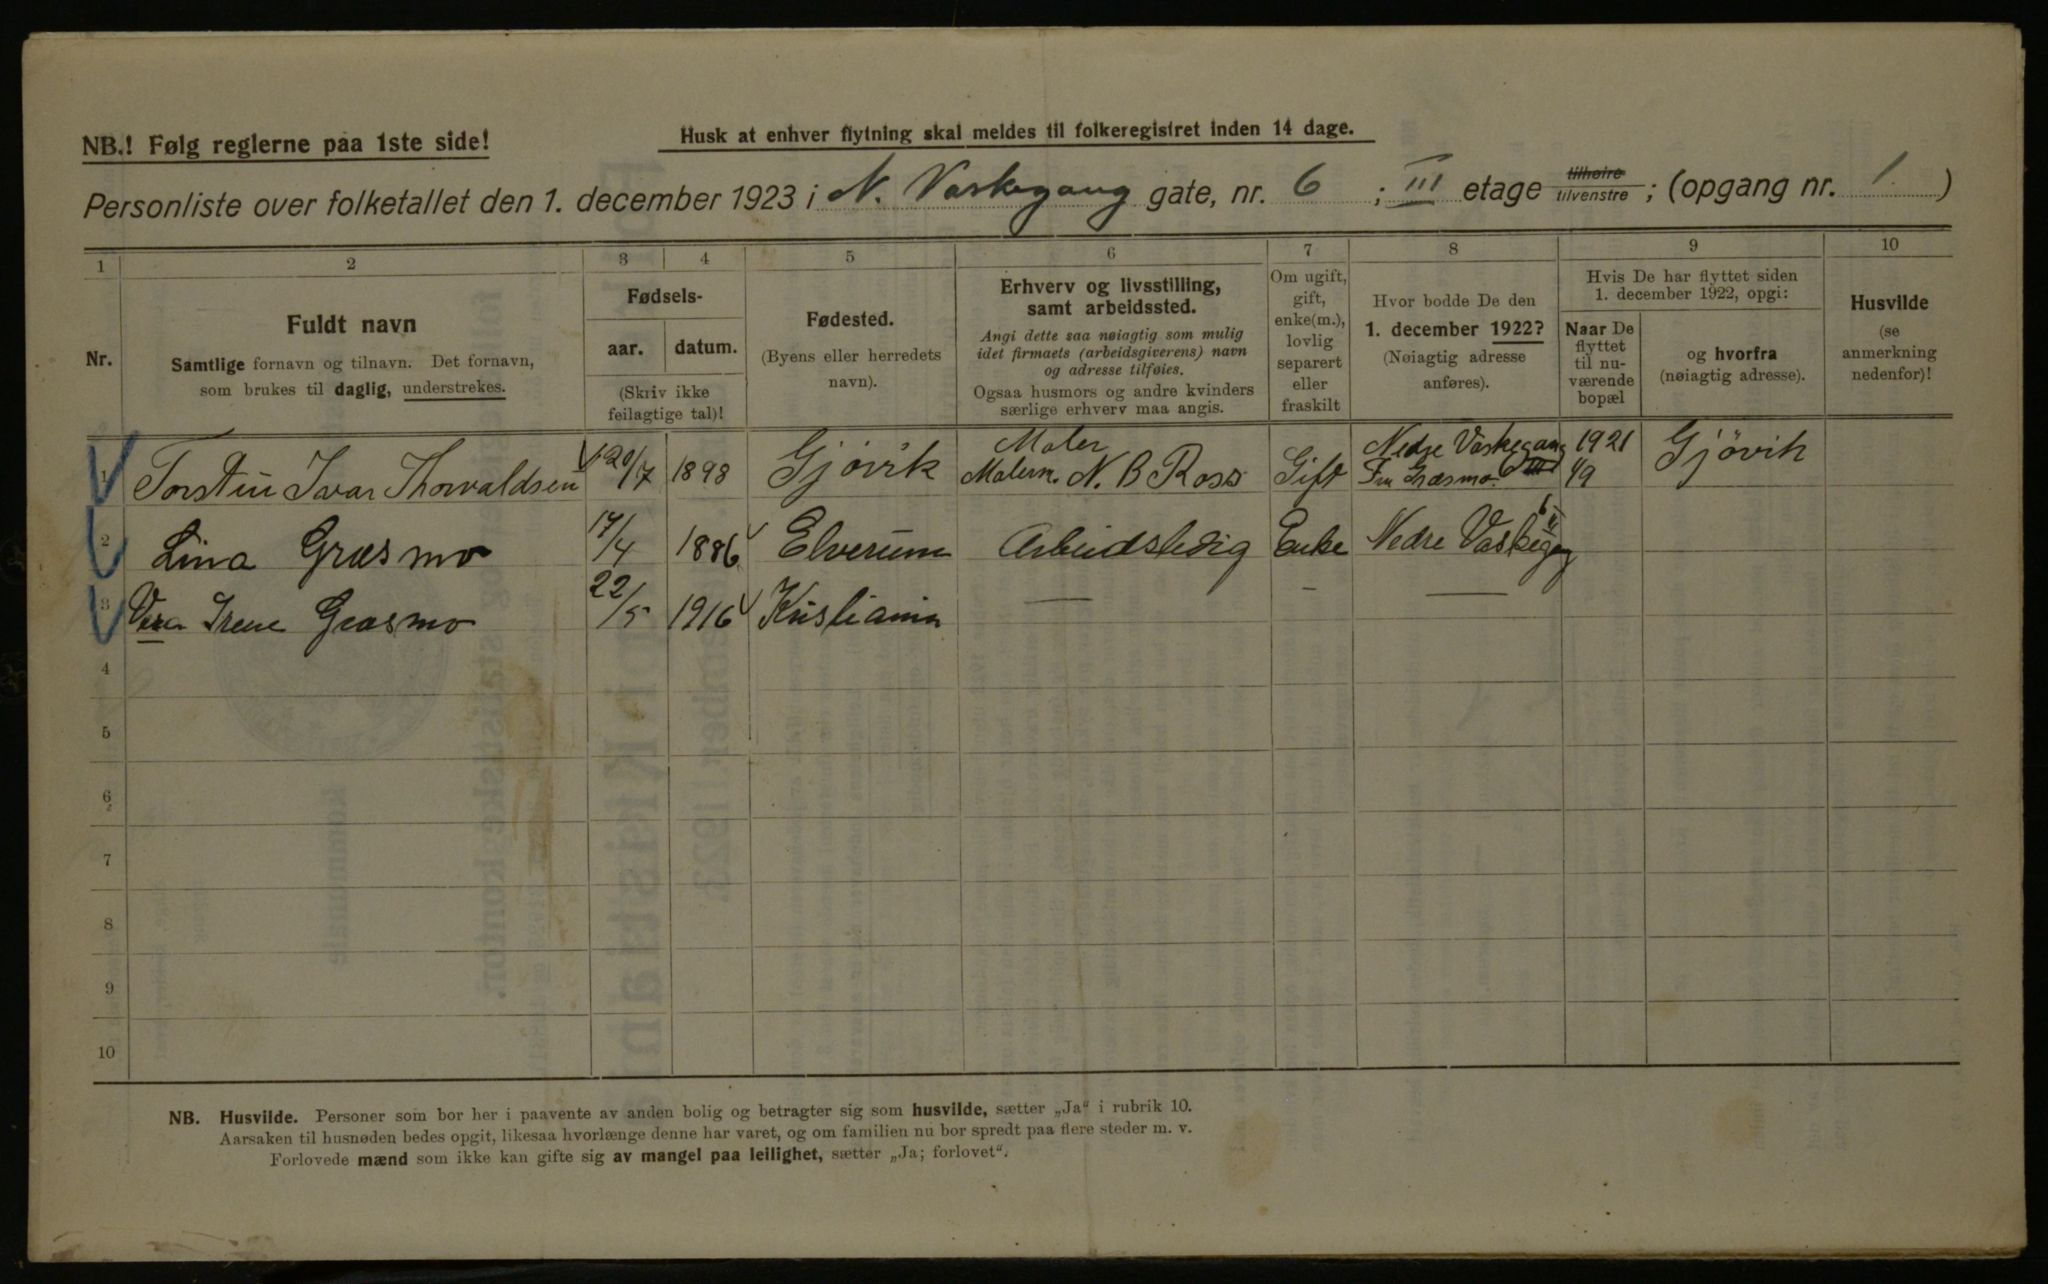 NB.! Følg reglerne paa 1ste side!
Husk at enhver flytning skal meldes til folkeregistret inden 14 dage.
Personliste over folketallet den 1. december 1923 i N. Vaskegang gate, nr. 6 ; III etage tilhøire tilvenstre ; (opgang nr. 1. )
1 2 3 4 5 6 7 8 9 10
Nr.
Fuldt navn
Samtlige fornavn og tilnavn. Det fornavn,
som brukes til daglig, understrekes.
Fødsels-
aar. datum.
(Skriv ikke
feilagtige tal)!
Fødested.
(Byens eller herredets
navn).
Erhverv og livsstilling,
samt arbeidssted.
Angi dette saa nøiagtig som mulig
idet firmaets (arbeidsgiverens) navn
og adresse tilføies.
Ogsaa husmors og andre kvinders
særlige erhverv maa angis.
Om ugift,
gift,
enke(m.),
lovlig
separert
eller
fraskilt
Hvor bodde De den
1. december 1922?
(Nøiagtig adresse
anføres).
Hvis De har flyttet siden
1. december 1922, opgi:
Naar De
flyttet
til nu-
værende
bopæl
og hvorfra
(nøiagtig adresse).
Husvilde
(se
anmerkning
nedenfor)!
1 Torstein Ivar Thorvaldsen 20/7 1898 Gjövik Maler Malerm. N. B Ross Gift Nedre Vaskegang Fru Græsmo. 1921 1/9 Gjövik
2 Lina Græsmo 17/4 1886 Elverum Arbeidsledig Enke Nedre Vaskegg 6
3 Vera Irene Græsmo 22/5 1916 Kristiania — — —
4
5
6
7
8
9
10
NB. Husvilde. Personer som bor her i paavente av anden bolig og betragter sig som husvilde, sætter „Ja“ i rubrik 10.
Aarsaken til husnøden bedes opgit, likesaa hvorlænge denne har varet, og om familien nu bor spredt paa flere steder m. v.
Forlovede mænd som ikke kan gifte sig av mangel paa leilighet, sætter „Ja; forlovet“.